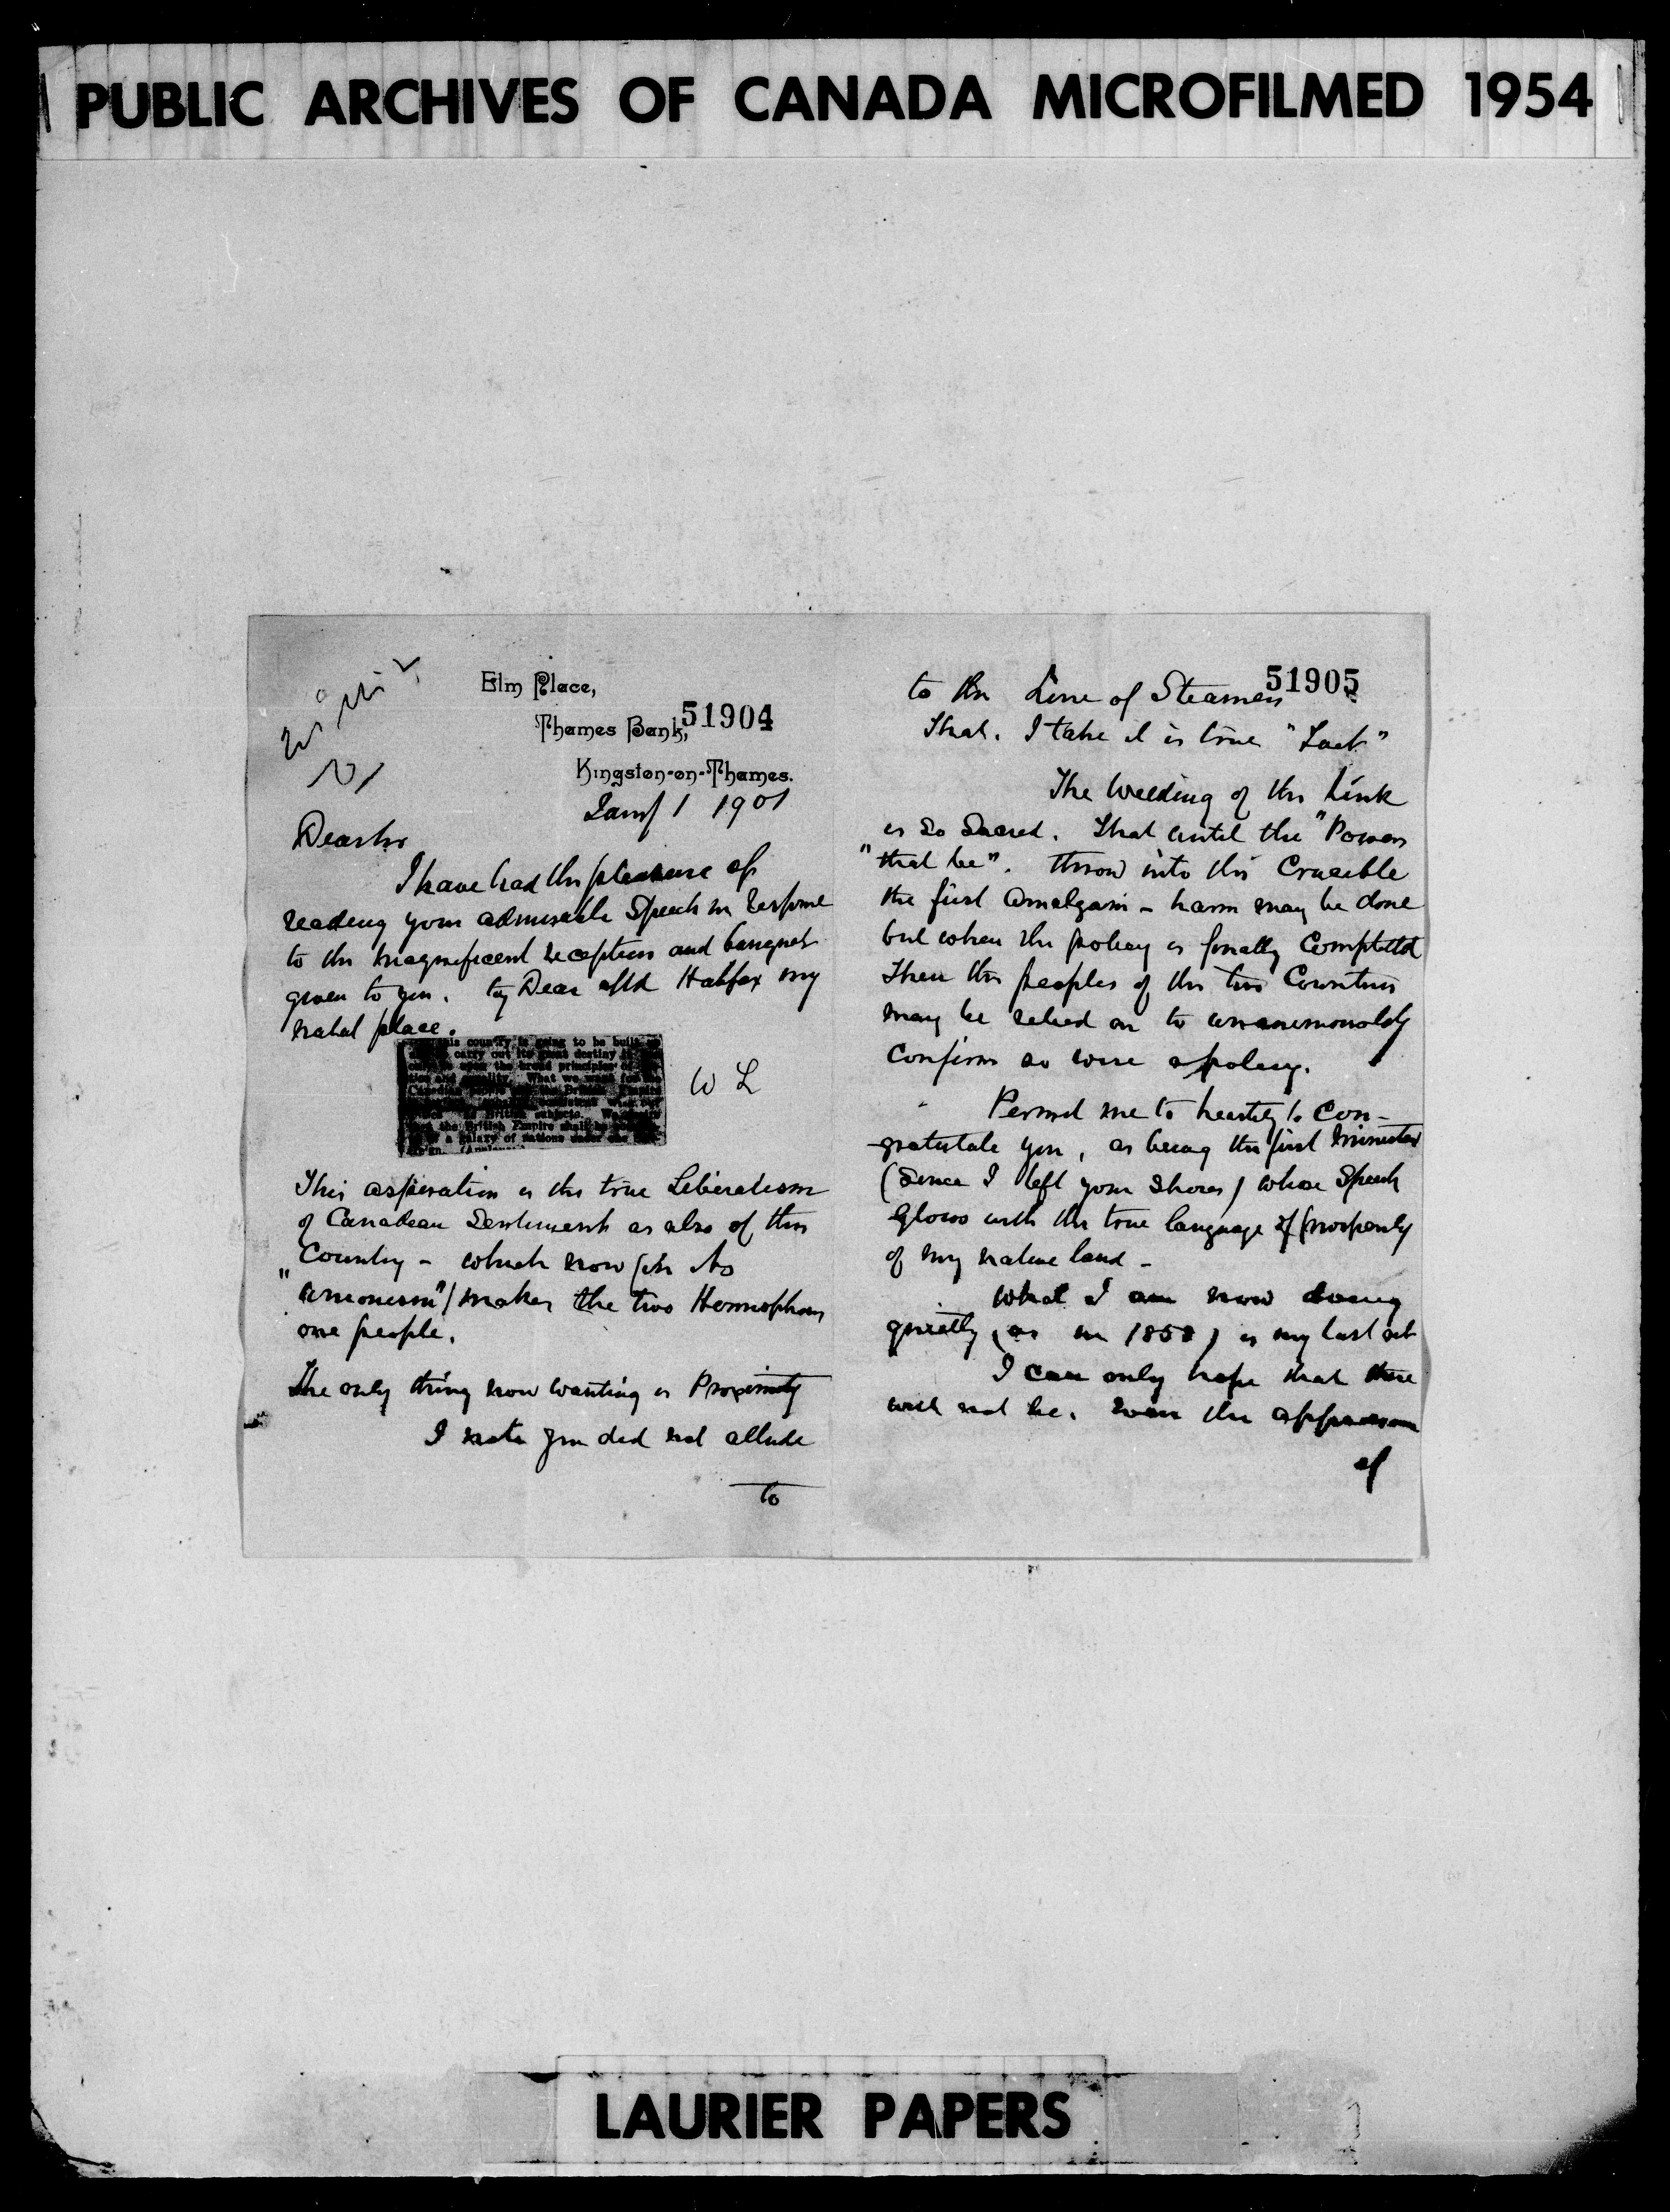 PUBLIC ARCHIVES OF CANADA MICROFILMED 1954
Elm Place,
51904
Thames Bank,
Kingston-on-Thames.
Jany 1 1901
Dear Sir
I have had the pleasure of
reading your admirable Speech in response
to the magnificent reception and banquet
given to you. by Dear old Halifax my
natal place.
this country is going to be built
carry out its great destiny
upon the broad principles of
and equality. What we want for
British subjects. We
the British Empire shall be
a galaxy of nations under one
W L
This aspiration is the true Liberalism
of Canadian Sentiment as also of this
Country - which now (in its
"unionism") makes the two Hemispheres
one people.
The only thing now wanting is Proximity
I note you did not allude
to
51905
to the Line of Steamers
That. I take it is true "Tact"
The Welding of the Link
is so Sacred. That until the "Powers
"that be". throw into the Crucible
the first amalgam - harm may be done
but when the policy is finally Completed
Then the peoples of the two Countries
may be relied on to unanimously
Confirm so wise a policy.
Permit me to heartily to Con-
gratulate you, as being the first Minister
(Since I left your Shores) whose Speech
Glows with the true language of prosperity
of my native land -
What I am now doing
quietly (as in 1858) is my last act
I can only hope that there
will not be. Even the appearance
of
LAURIER PAPERS